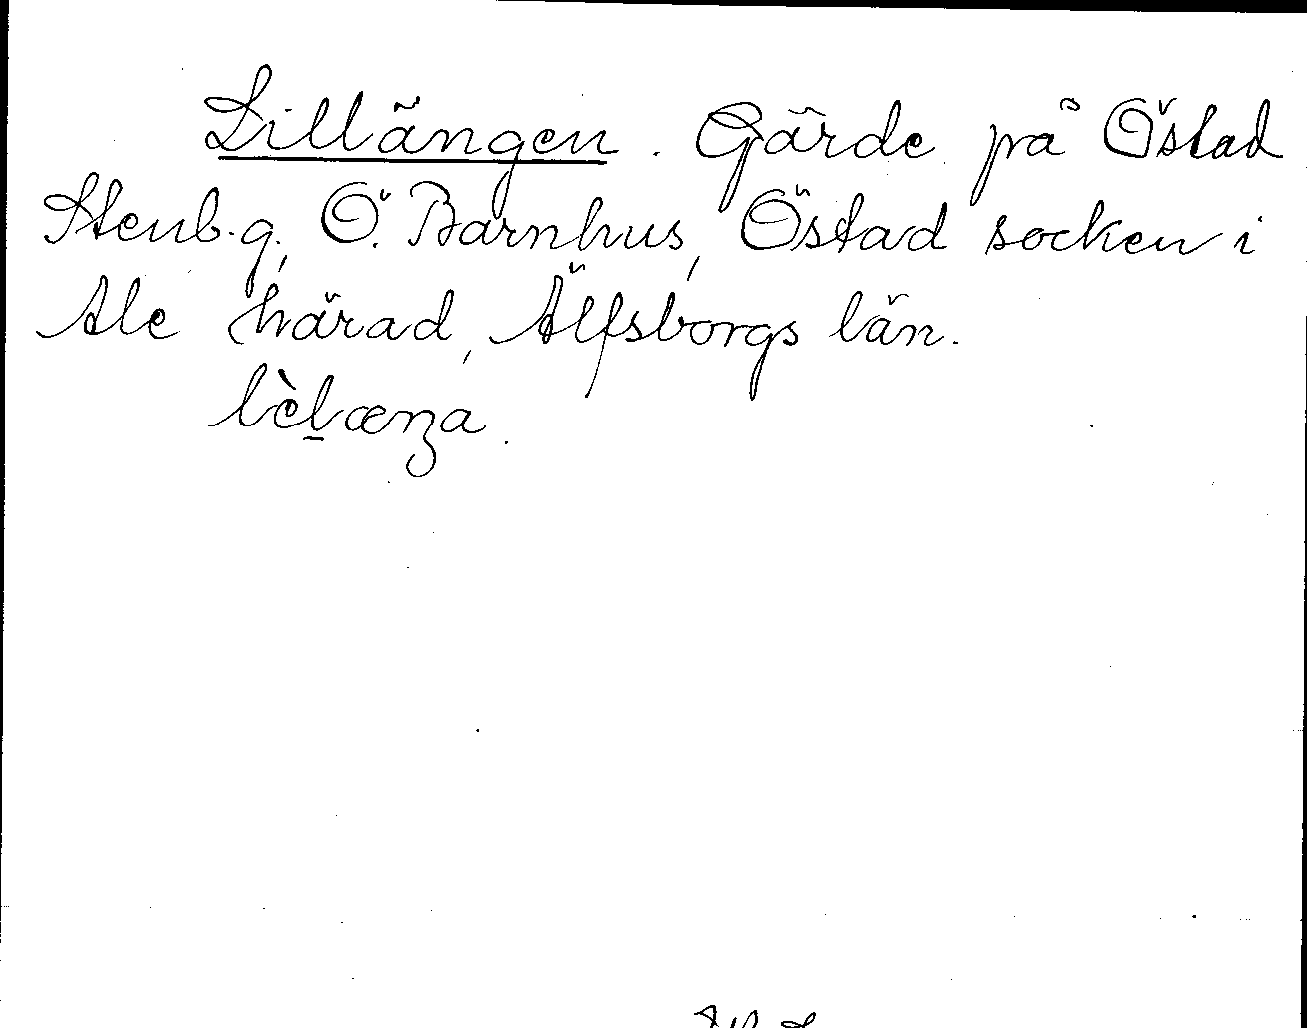 Lillängen. Gärde på Östad
Stenb.g., Ö. Barnhus, Östad socken i
Ale härad, Älfsborgs län.
lèlænza.